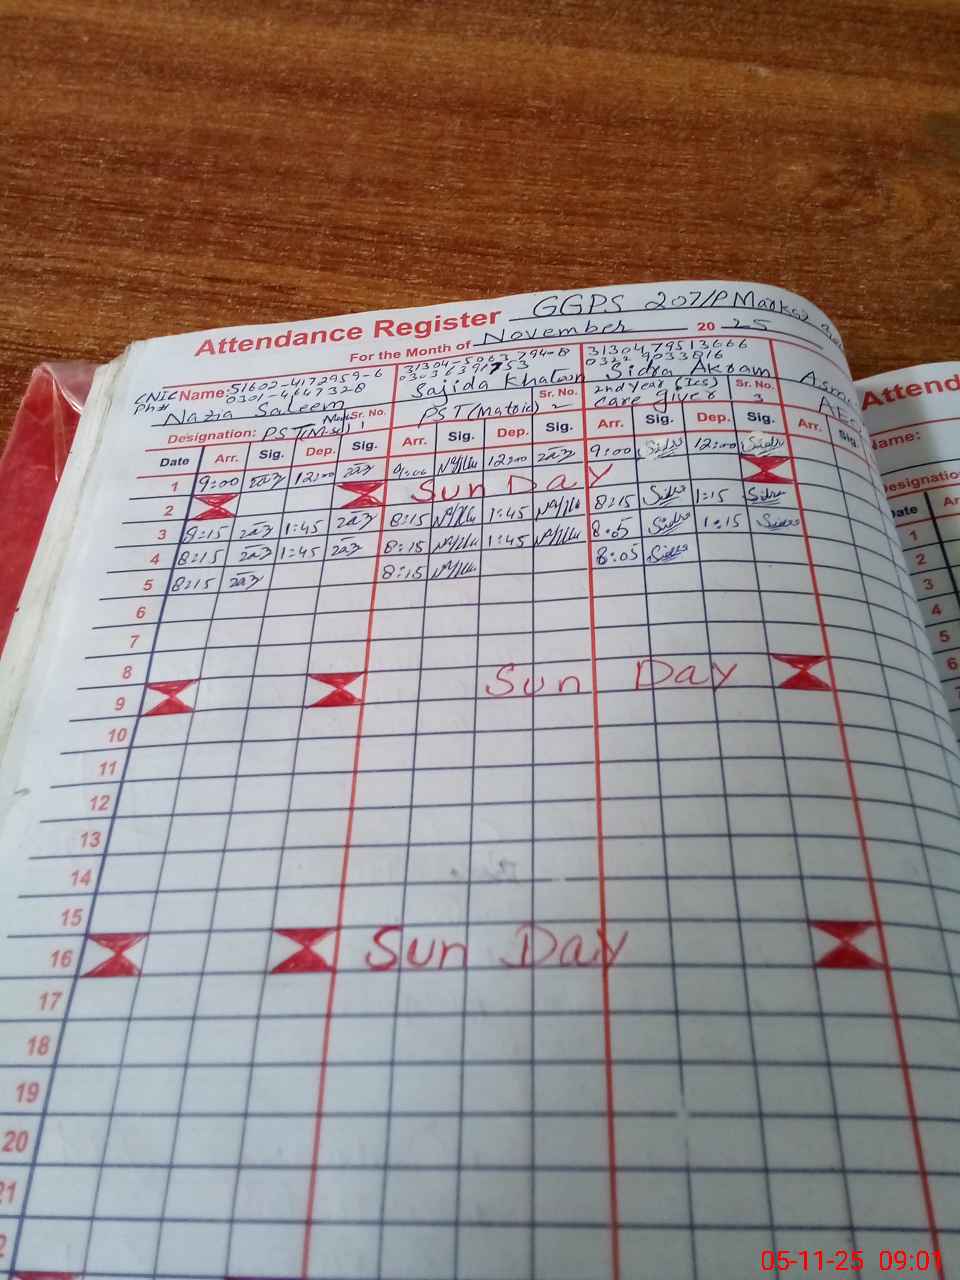 Attendance Register GGPS 207/P Markaz
For the Month of November 20 25
CNIC 51602-4172959-6 31304-5063794-8 31304,79513666
Ph# 0301-4647378 03036391753 0322 9033816
Name: Nazia Saleem Sajida Khatoon Sidra Akram Asma
Designation: PST(M.Sc) Sr. No. 1 PST(Matric) Sr. No. 2 2nd Year (Ics) care giver Sr. No. 3
Date Arr. Sig. Dep. Sig. Arr. Sig. Dep. Sig. Arr. Sig. Dep. Sig. Arr. Sig.
1 9:00 12:00 9:00 12:00 9:00 Sidra 12:00 Sidra
2 Sun Day
3 8:15 1:45 8:15 1:45 8:15 Sidra 1:15 Sidra
4 8:15 1:45 8:15 1:45 8:05 Sidra 1:15 Sidra
5 8:15 8:15 8:05 Sidra
6
7
8
9 Sun Day
10
11
12
13
14
15
16 Sun Day
17
18
19
20
21
2
Attend
Name:
Designatio
Date Ar
1
2
3
4
5
6
05-11-25 09:01